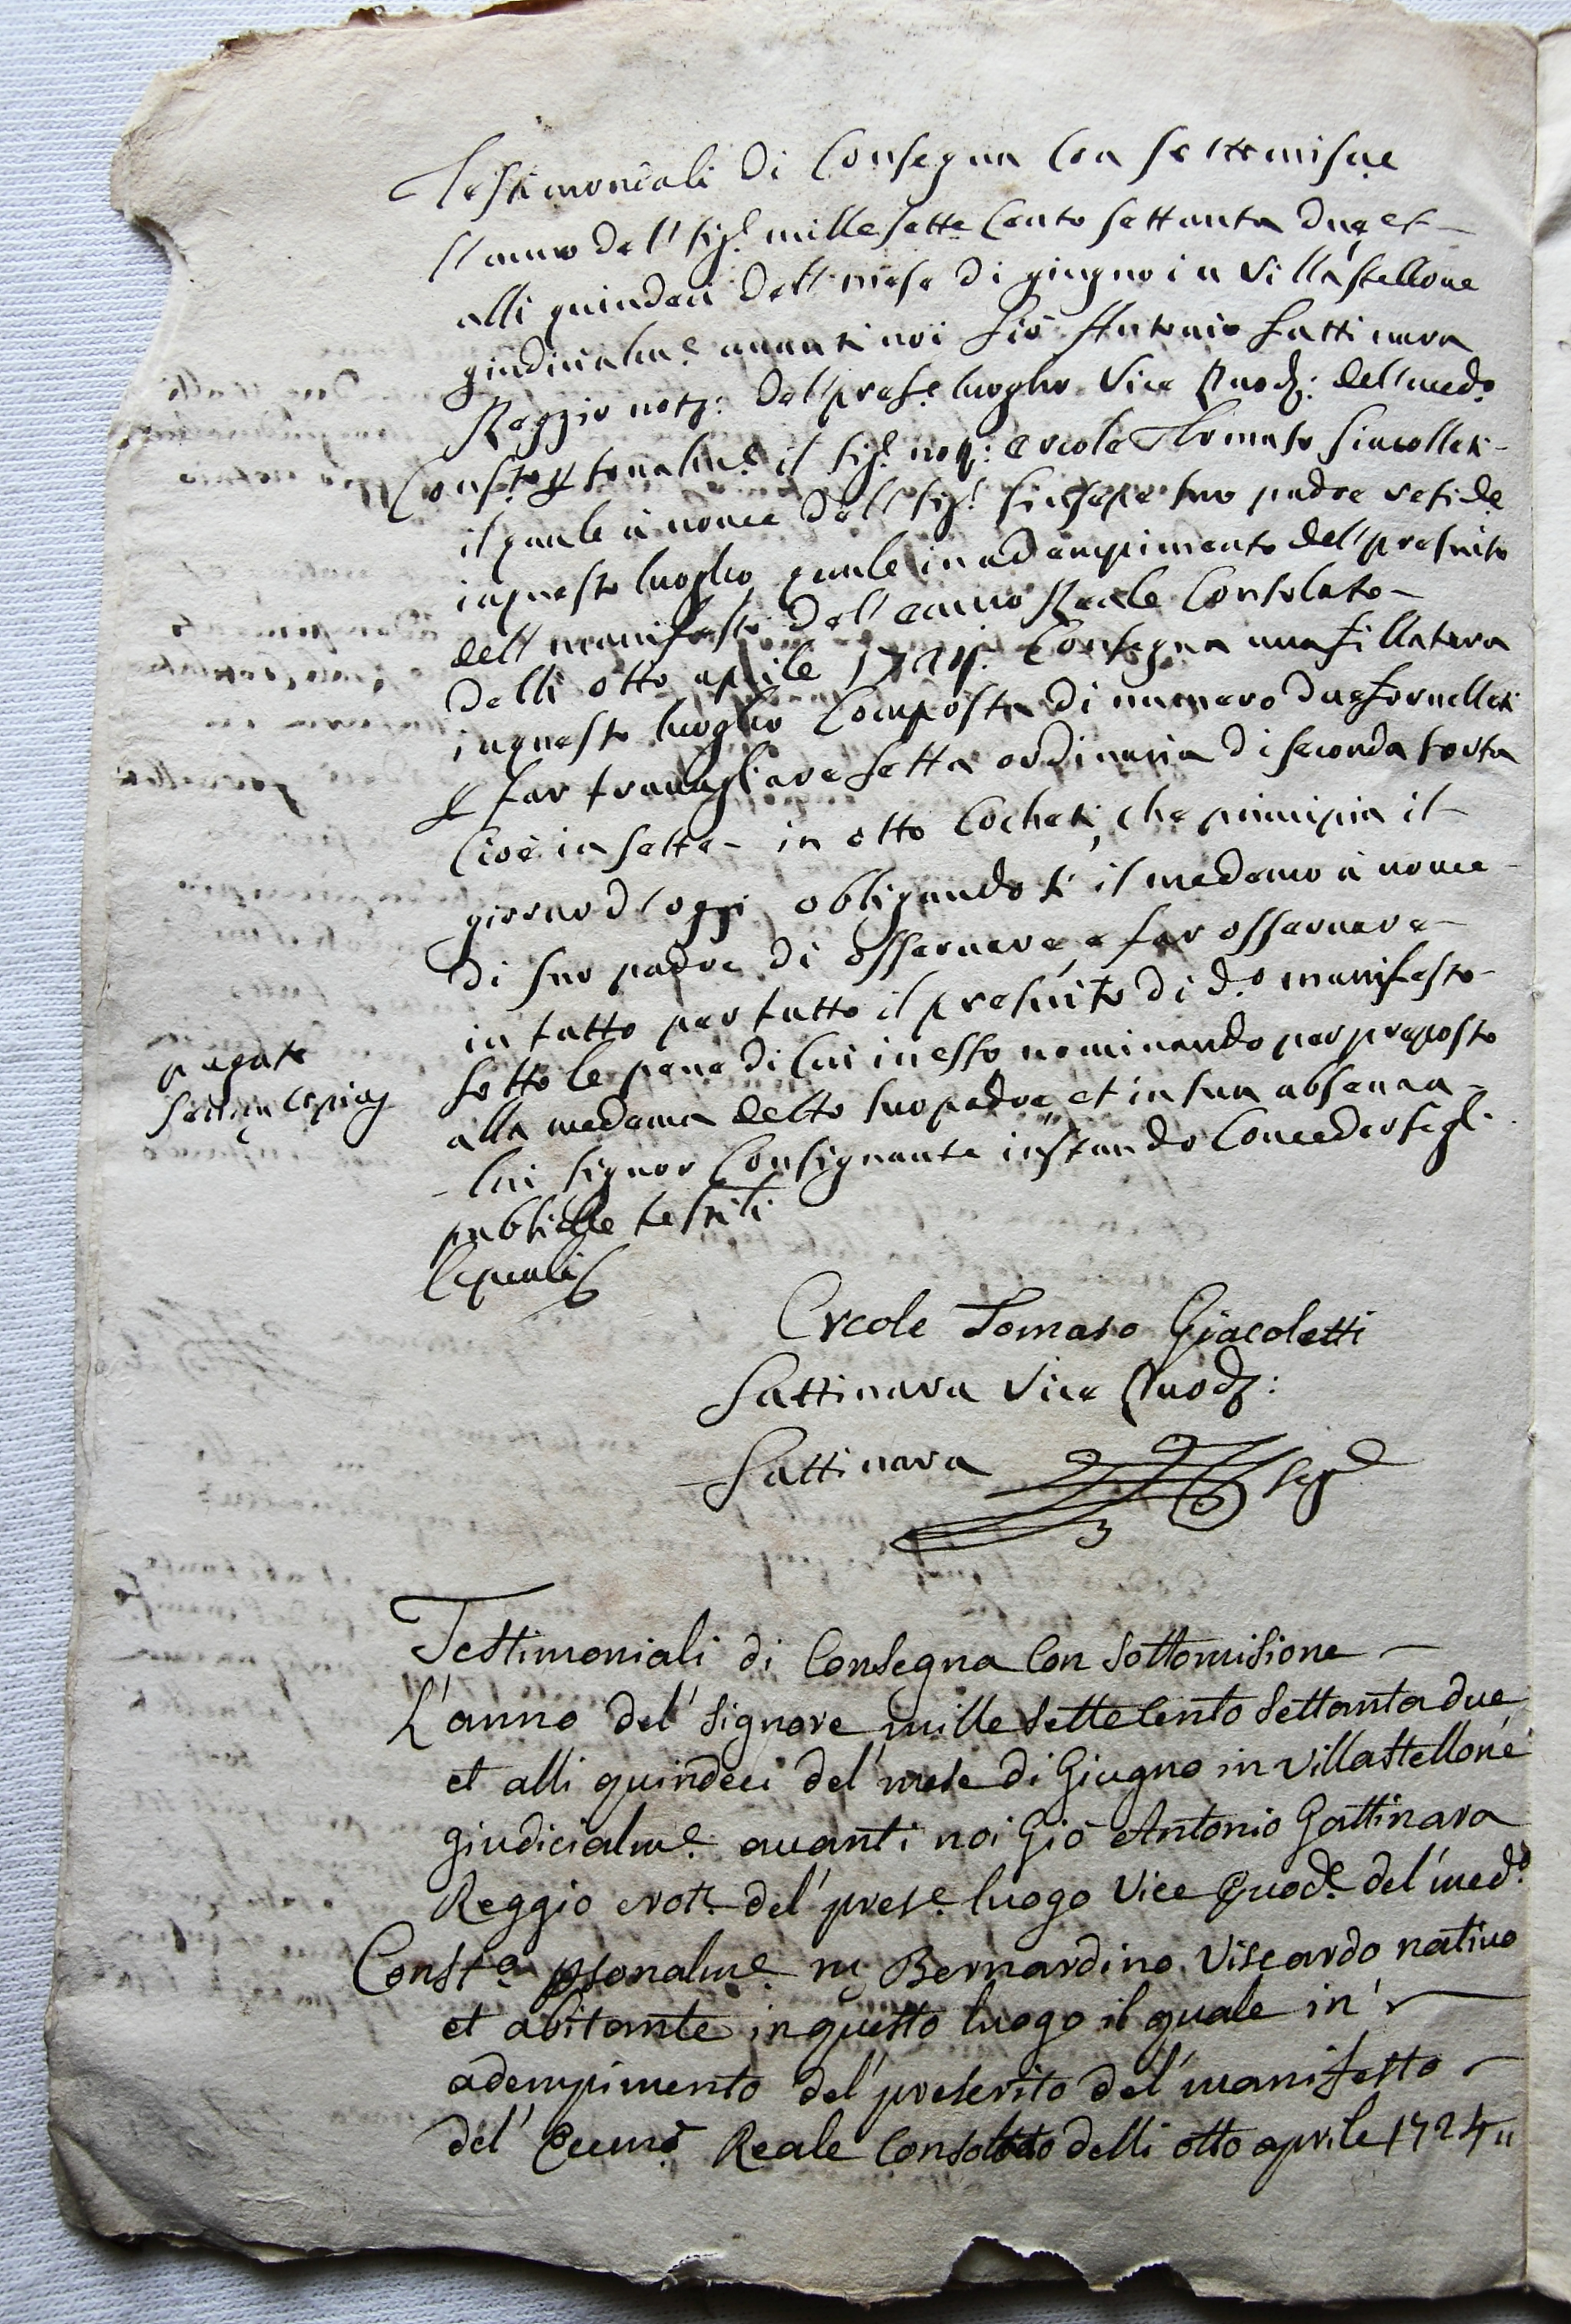 Testimoniali di Consegna Con sottomis.ne
L'anno del' sig.r mille sette Cento settanta due et
alli quindeci dell mese di giugno in Villastellone
giudicialm.e auanti noi Gio Antonio Gattinara
Reggio not.o: dell pres.e luogho Vice Giud.e: dell med.o
Const.o personalm.e il sig.r not.o: ercole Thomaso Giacolleti
il quale à nome dell sig.r Giusepe suo padre reside.
in questo luogho quale in adempimento dell prescrito
dell manifesto dell' eccmo Reale Consolato
delli otto aprile 1724. Consegna una fillatura
in questo luogho Composta di numero due fornelleti
per far trauagliare setta ordinaria di seconda sorta
Cioè in sette in otto Cocheti, che principia il
giorno d'oggi, obligandosi il medemo à nome
di suo padre di osseruare, e far osseruare
in tutto per tutto il prescrito di d.o manifesto
sotto le pene di Cui in esso nominando per preposto
alla medema detto suo padre, et in sua absenza
lui signor Consignante instando Concedersegli
publiche test.li
le quali
pagate
Ercole Tomaso Giacoletti
Gattinara Vice Giud.e:
Gattinara Seg.o
Testimoniali di Consegna Con Sottomisione
L'anno del' Signore mille Sette Cento Settanta due
et alli quindeci del' mese di Giugno in Villastellone
giudicialm.e auanti noi Gio Antonio Gattinara
Reggio Not.o del' pres.e luogo Vice Giud.e del' med.o
Const.o personalm.e m. Bernardino Viscardo natiuo
et abitante in questo luogo il quale in'
adempimento del' prescrito del' manifesto
del' Eccmo Reale Consolato delli otto aprile 1724